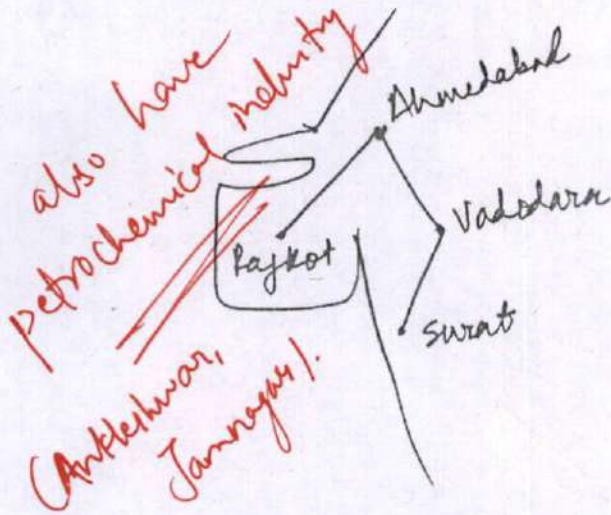 also have
petrochemical industry
(Ankleshwar,
Jamnagar).
Ahmedabad
Rajkot
Vadodara
Surat